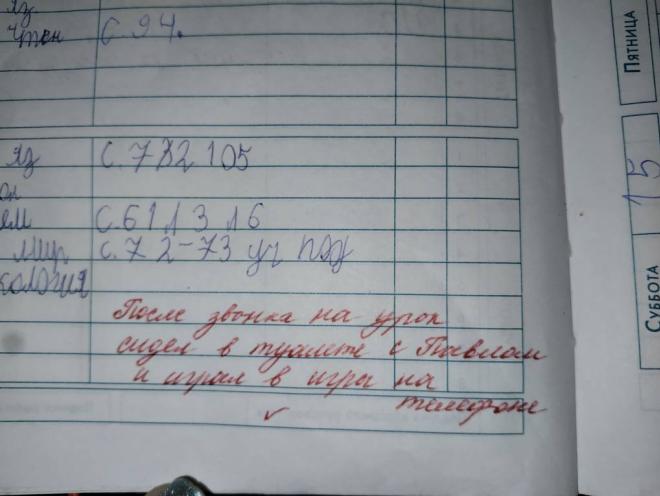 яз
Чтен с. 94.
яз с. 7 102 105
ем с. 61 13 16
мир с. 72-73 уч
кология
После звонка на урок
сидел в туалете с Павлом
и играл в игры на
телефоне
ПЯТНИЦА
15
СУББОТА